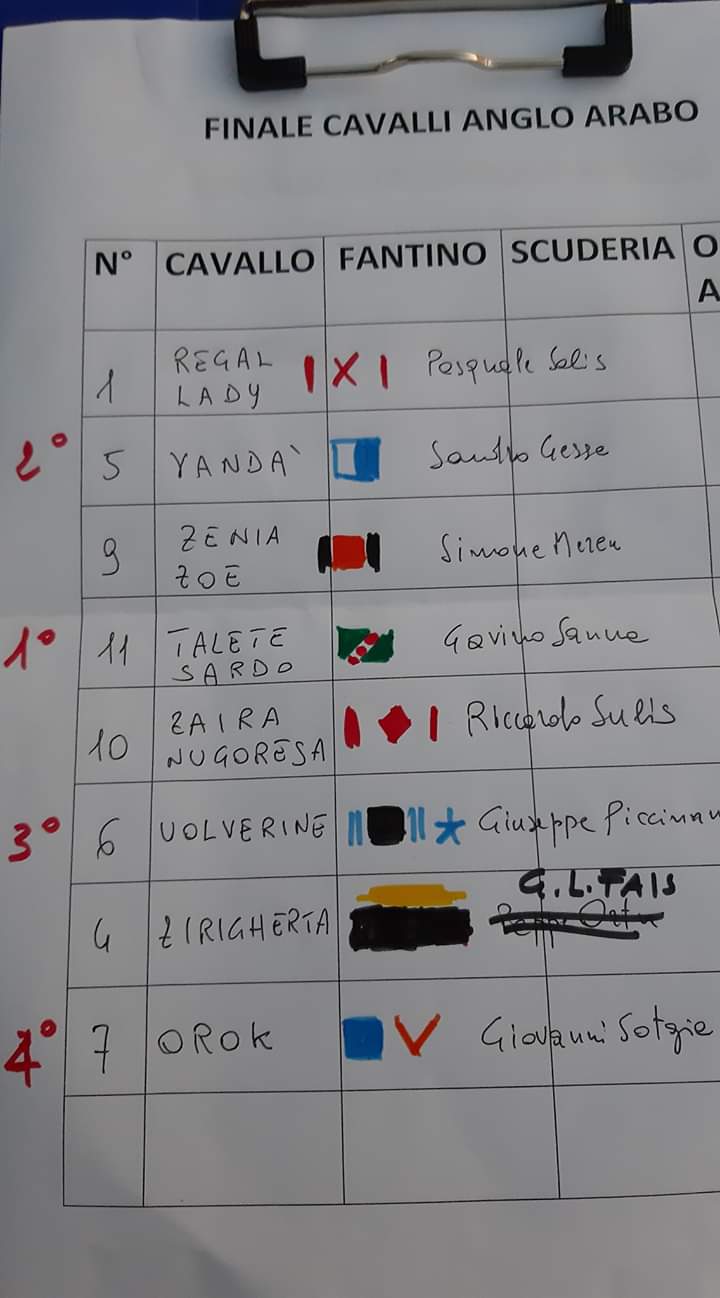 FINALE CAVALLI ANGLO ARABO
N° CAVALLO FANTINO SCUDERIA O
A
1 REGAL LADY Pasquale Solis
2° 5 VANDA` Sandro Gesse
9 ZENIA ZOE Simone Mereu
1° 11 TALETE SARDO Gavino Sanna
10 ZAIRA NUGORESA Riccardo Sulis
3° 6 UOLVERINE Giuseppe Piccinnu
4 ZIRIGHERTA G.L.FAIS
4° 7 OROK Giovanni Sotgie